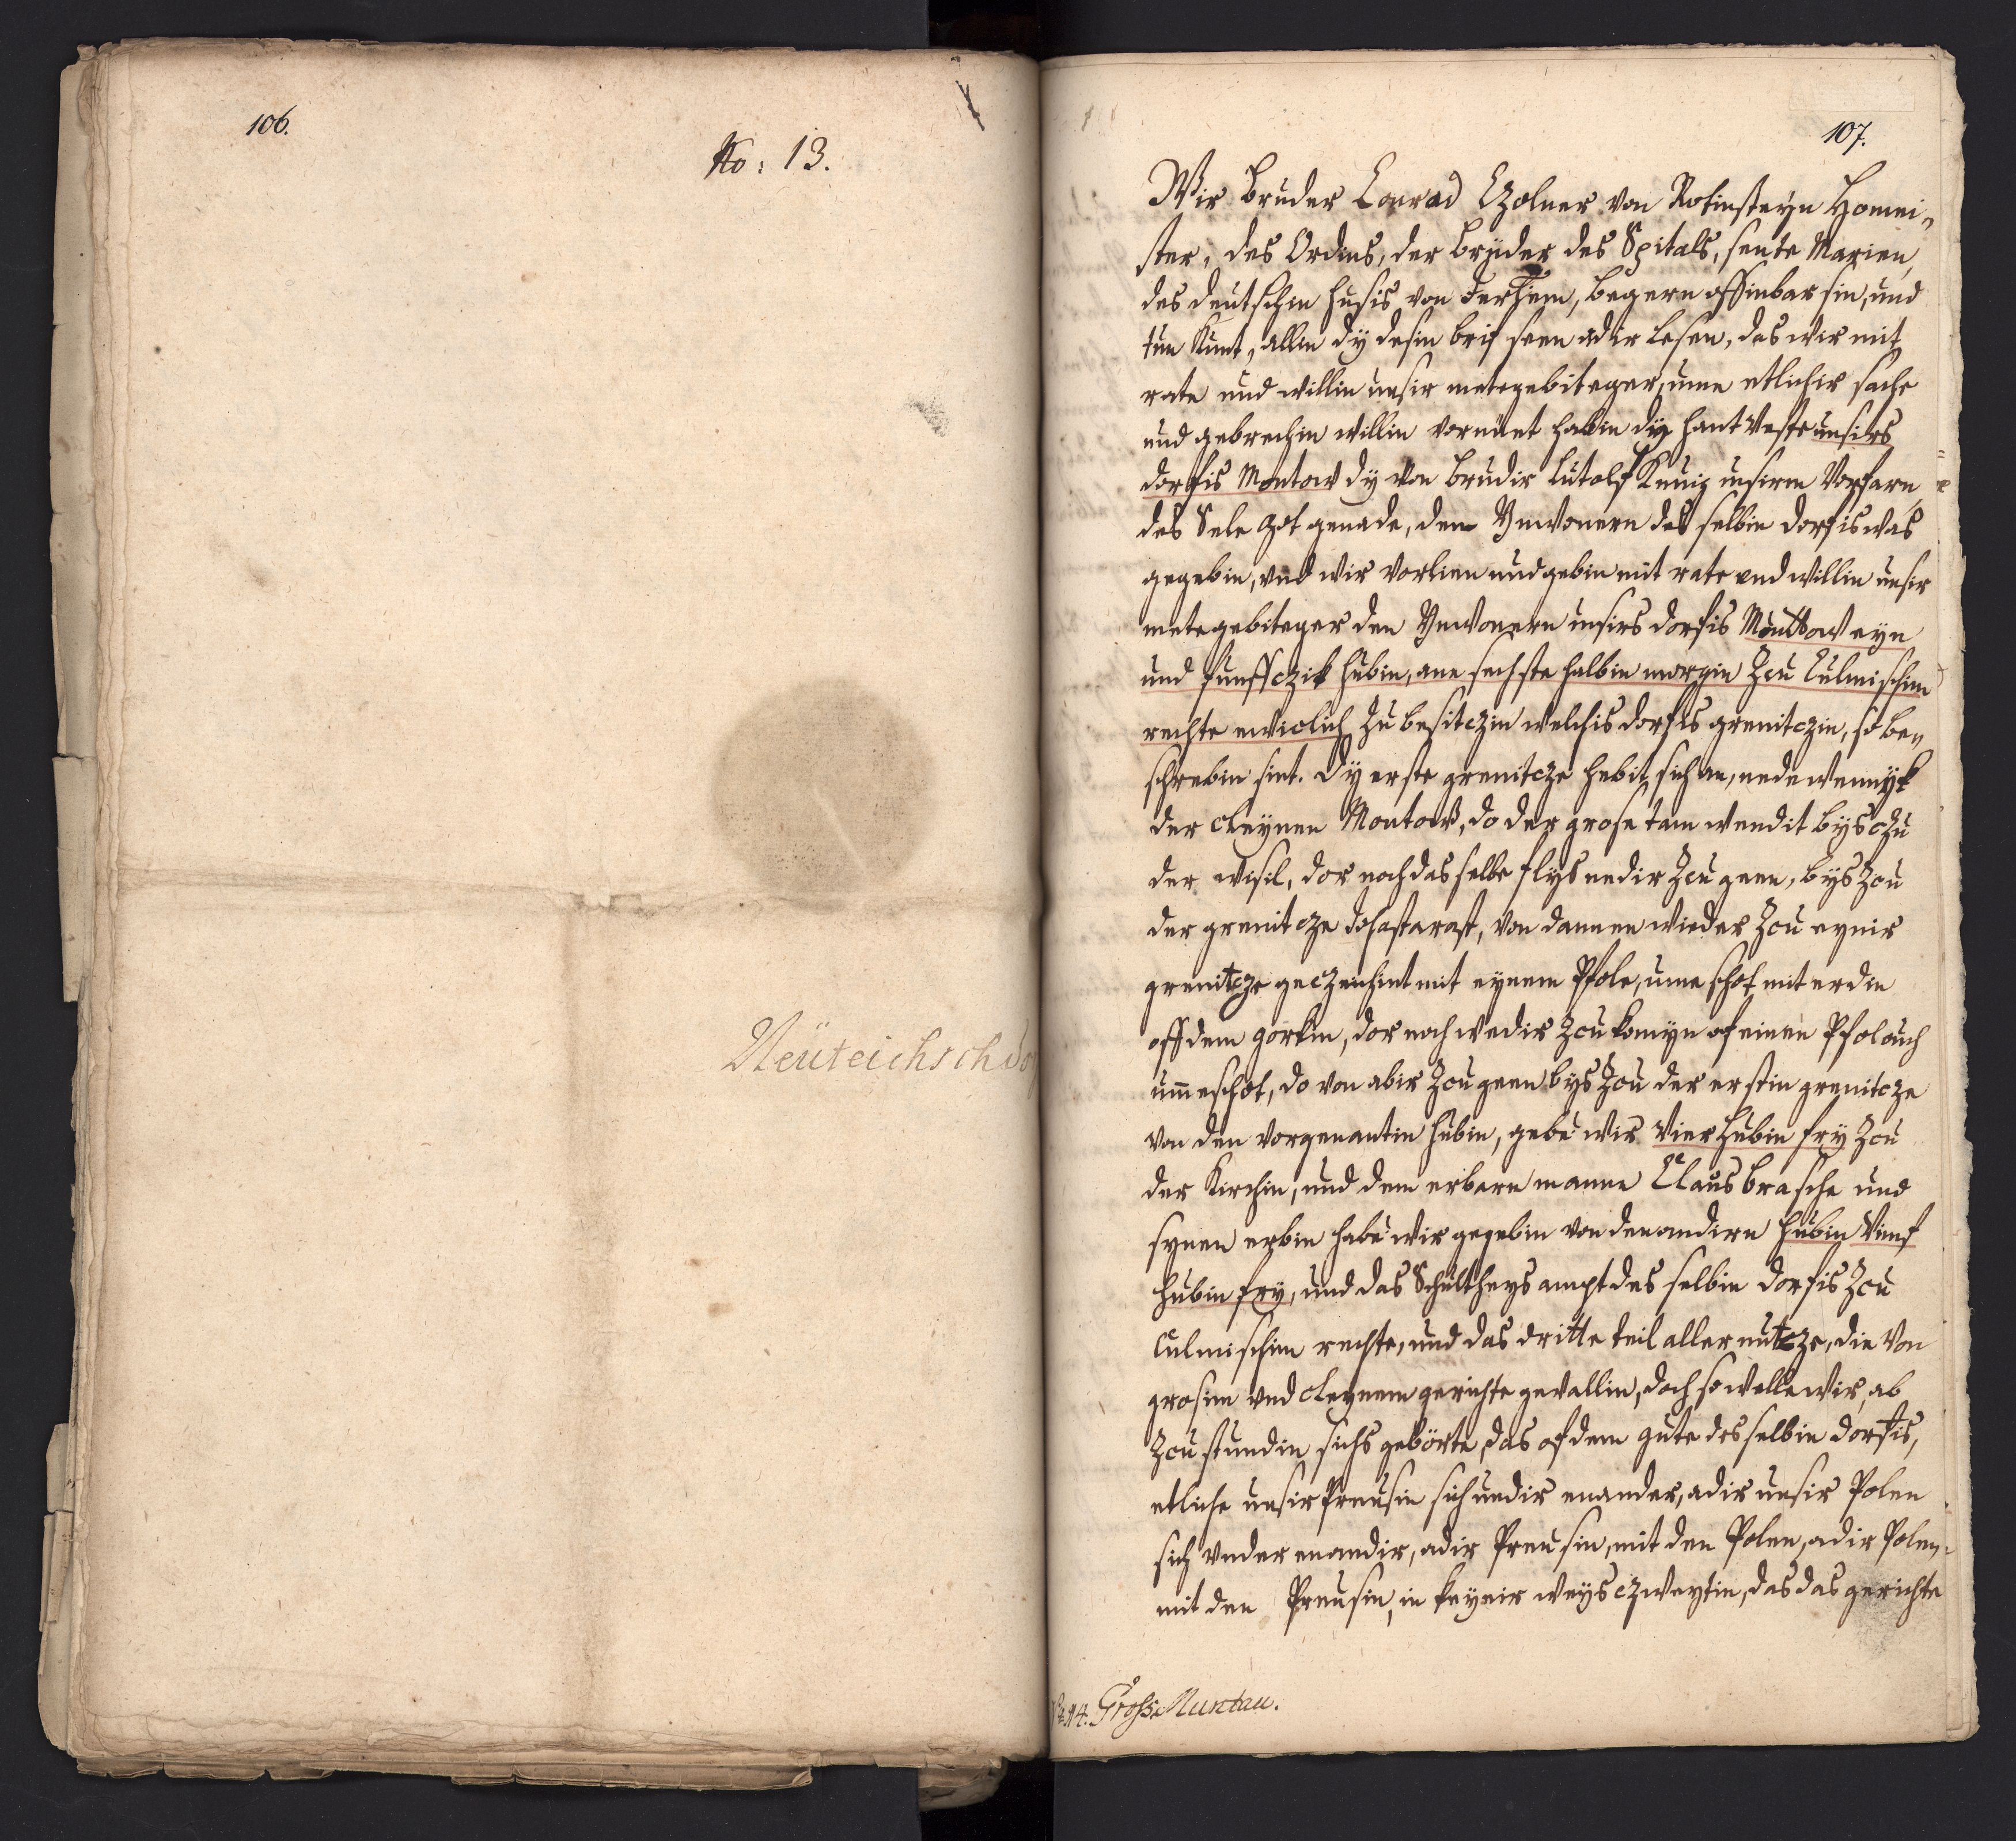 106.
No: 13.
Neüteichschdo
107.
Wir bruder Conrad Czolner von Rotinsteyn Homei„
ster, des Ordins, der bryder des Spitals, sente Marien,
des deutschin husis von Jerhsem, begern offinbar sin, und
tun kunt, allin dÿ desin brif seen adir lesen, das wir mit
rate und willin unsir metegebiteger, ume etlichir sache
und gebrechin willin vornüet habin dÿ hant Veste unsirs
dorfis Montow dÿ von brudir Lutolf Knnig unsirm Vorfarn,
des Sele got genade, den Ynwonern des selbin dorfis was
gegebin, und wir vorlien und gebin mit rate und willin unsir
metegebiteger den Ynwonern unsirs dorfis Montow eyn
und funffczik hubin, ane sechste halbin morgin Zcu Culmischim
rechte ewiclich Zu besitczin welchis dorfis grenitczin, so be„
schrebin sint. Dÿ erste grenitcze hebit sich an, nedewennÿk
der cleÿnen Montow, do der grose tam wendit bÿs czu
der wisil, dor noch das selbe flÿs nedir Zcu geen, bÿs Zcu
der grenitcze von dannen wieder Zcu eynir
grenitcze geczeichint mit eÿnem Pfole, ume schot mit erdin
off dem gorkin, dor noch wedir Zcu komÿn of einen Pfol ouch
um̄eschot, do von abir Zcu geen bÿs Zcu der erstin grenitcze
von den vorgenantin hubin, gebe wir Vier hubin frÿ Zcu
der Kirchin, und dem erbarn manne Claus brasche und
synen erbin habe wir gegebin von den andirn hubin Vinf
hubin frÿ, und das Schultheys ampt des selbin dorfis Zcu
Culmischim rechte, und das dritte teil aller nutcze, die von
grosim und cleynem gerichte gevallin, doch so welle wir, ab
Zcu stundin sichs gebörte, das of dem gute des selbin dorfis,
etliche unsir Preusin sich undir enander, adir unsir Polen
sich under enandir, adir Preusin, mit den Polen, adir Polen
mit den Preusin, in keynir weys czweytin, das das gerichte
No 14. Gross Muntau.